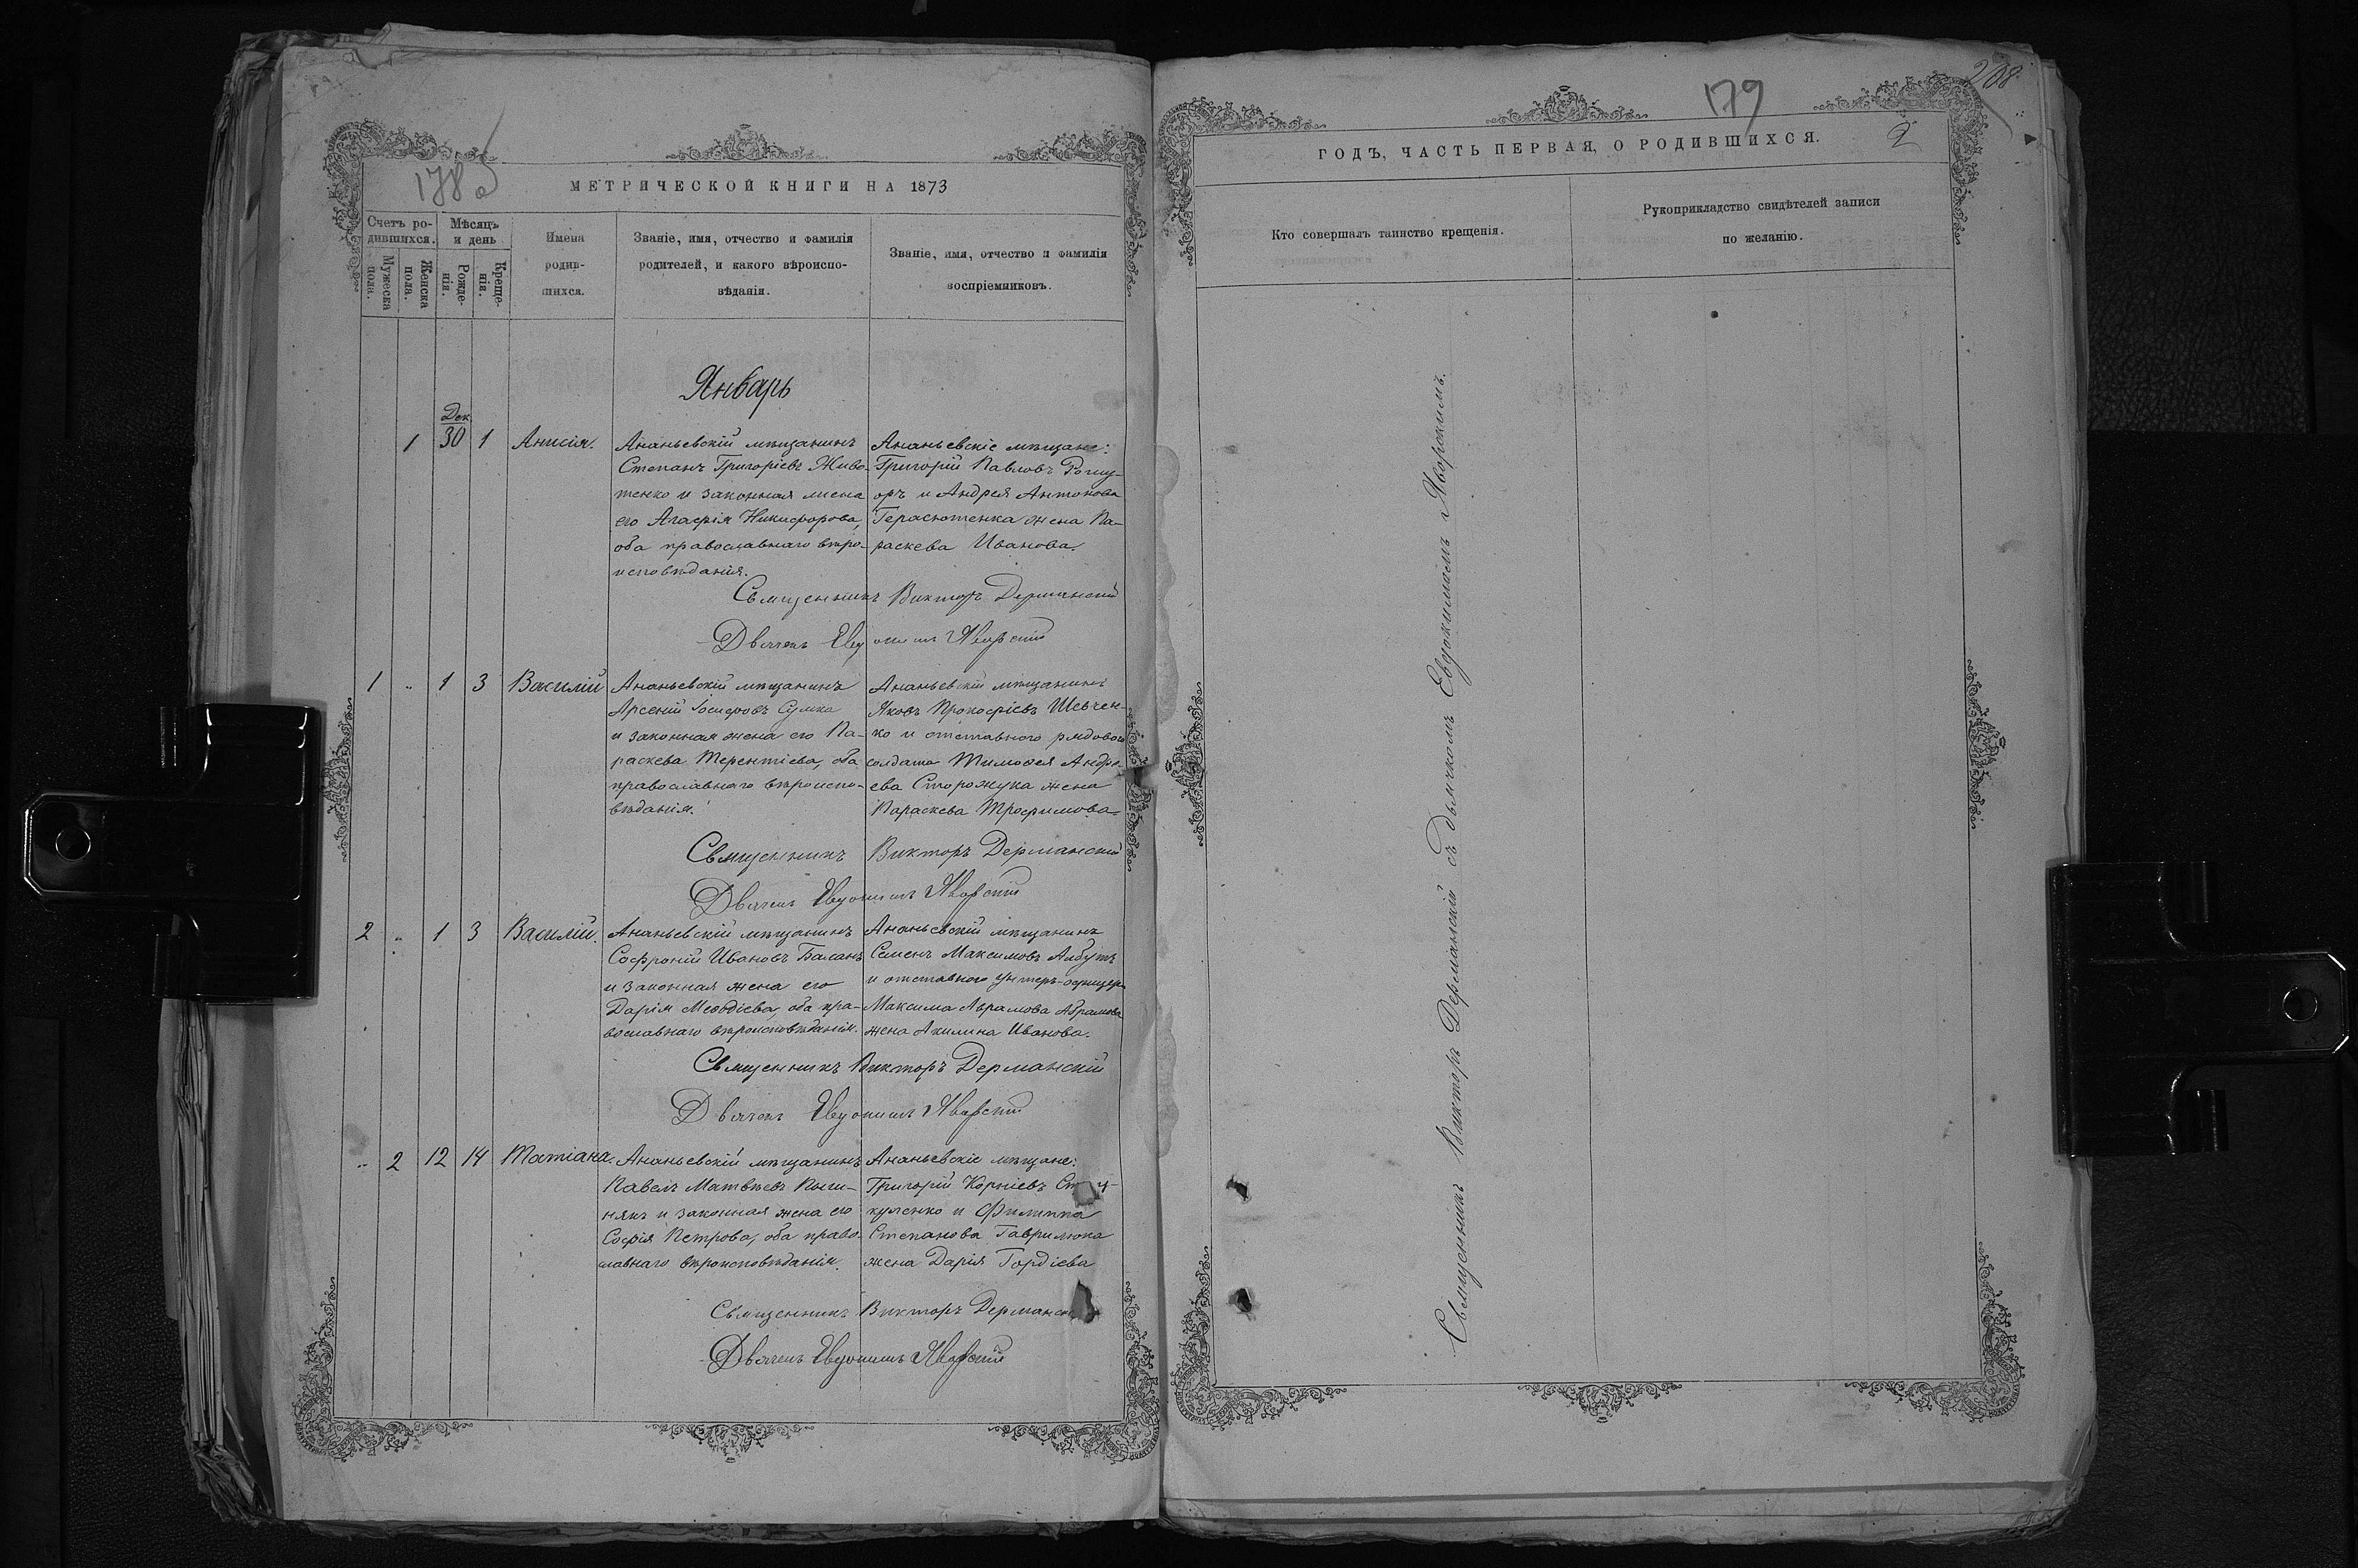 178 об
МЕТРИЧЕСКОЙ КНИГИ НА 1873
Счетъ ро-
дившихся.
Мужеска
пола.
Женска
пола.
Мѣсяцъ
и день
Рожде-
нія.
Креще-
нія.
Имена
родив-
шихся.
Званіе, имя, отчество и фамилія
родителей, и какого вѣроиспо-
вѣданія.
Званіе, имя, отчество и фамилія
воспріемниковъ.
Январь
Дек
1 30 1 Анисія.
Ананьевскій мѣщанинъ
Степанъ Григоріевъ Живо-
тенко и законная жена
его Агафія Никифорова,
оба православнаго вѣро-
исповѣданія.
Ананьевскіе мѣщане:
Григорій Павловъ
и Андрея Антонова
Герасютенка жена Па-
раскева Иванова.
Священникъ Викторъ Дерманскій
Дьячекъ Евдокимъ Яворскій
1 „ 1 3 Василій
Ананьевскій мѣщанинъ
Арсеній Іосифовъ Сумка
и законная жена его Па-
раскева Терентіева, оба
православнаго вѣроиспо-
вѣданія.
Ананьевскій мѣщанинъ
Яковъ Прокофіевъ Шевчен-
ко и отставного рядового
солдата Тимофея Андре-
ева Сторожука жена
Параскева Трофимова
Священникъ Викторъ Дерманскій
Дьячекъ Евдокимъ Яворскій
2 „ 1 3 Василій.
Ананьевскій мѣщанинъ
Софроній Ивановъ Баланъ
и законная жена его
Дарія Меѳодіева, оба пра-
вославнаго вѣроисповѣданія.
Ананьевскій мѣщанинъ
Семенъ Максимовъ Албутъ
и отставного унтеръ-офицера
Максима Абрамова
жена Акилина Иванова.
Священникъ Викторъ Дерманскій
Дьячекъ Евдокимъ Яворскій
„ 2 12 14 Татіана.
Ананьевскій мѣщанинъ
Павелъ Матвѣевъ
и законная жена его
Софія Петрова, оба право-
славнаго вѣроисповѣданія.
Ананьевскіе мѣщане:
Григорій Корніевъ
и Филиппа
Степанова Гаврилюка
жена Дарія Гордіева
Священникъ Викторъ Дерманскій
Дьячекъ Евдокимъ Яворскій
179
208
2
ГОДЪ, ЧАСТЬ ПЕРВАЯ, О РОДИВШИХСЯ.
Кто совершалъ таинство крещенія.
Рукоприкладство свидѣтелей записи
по желанію.
Священникъ Викторъ Дерманскій съ дьячкомъ Евдокимомъ Яворскимъ.